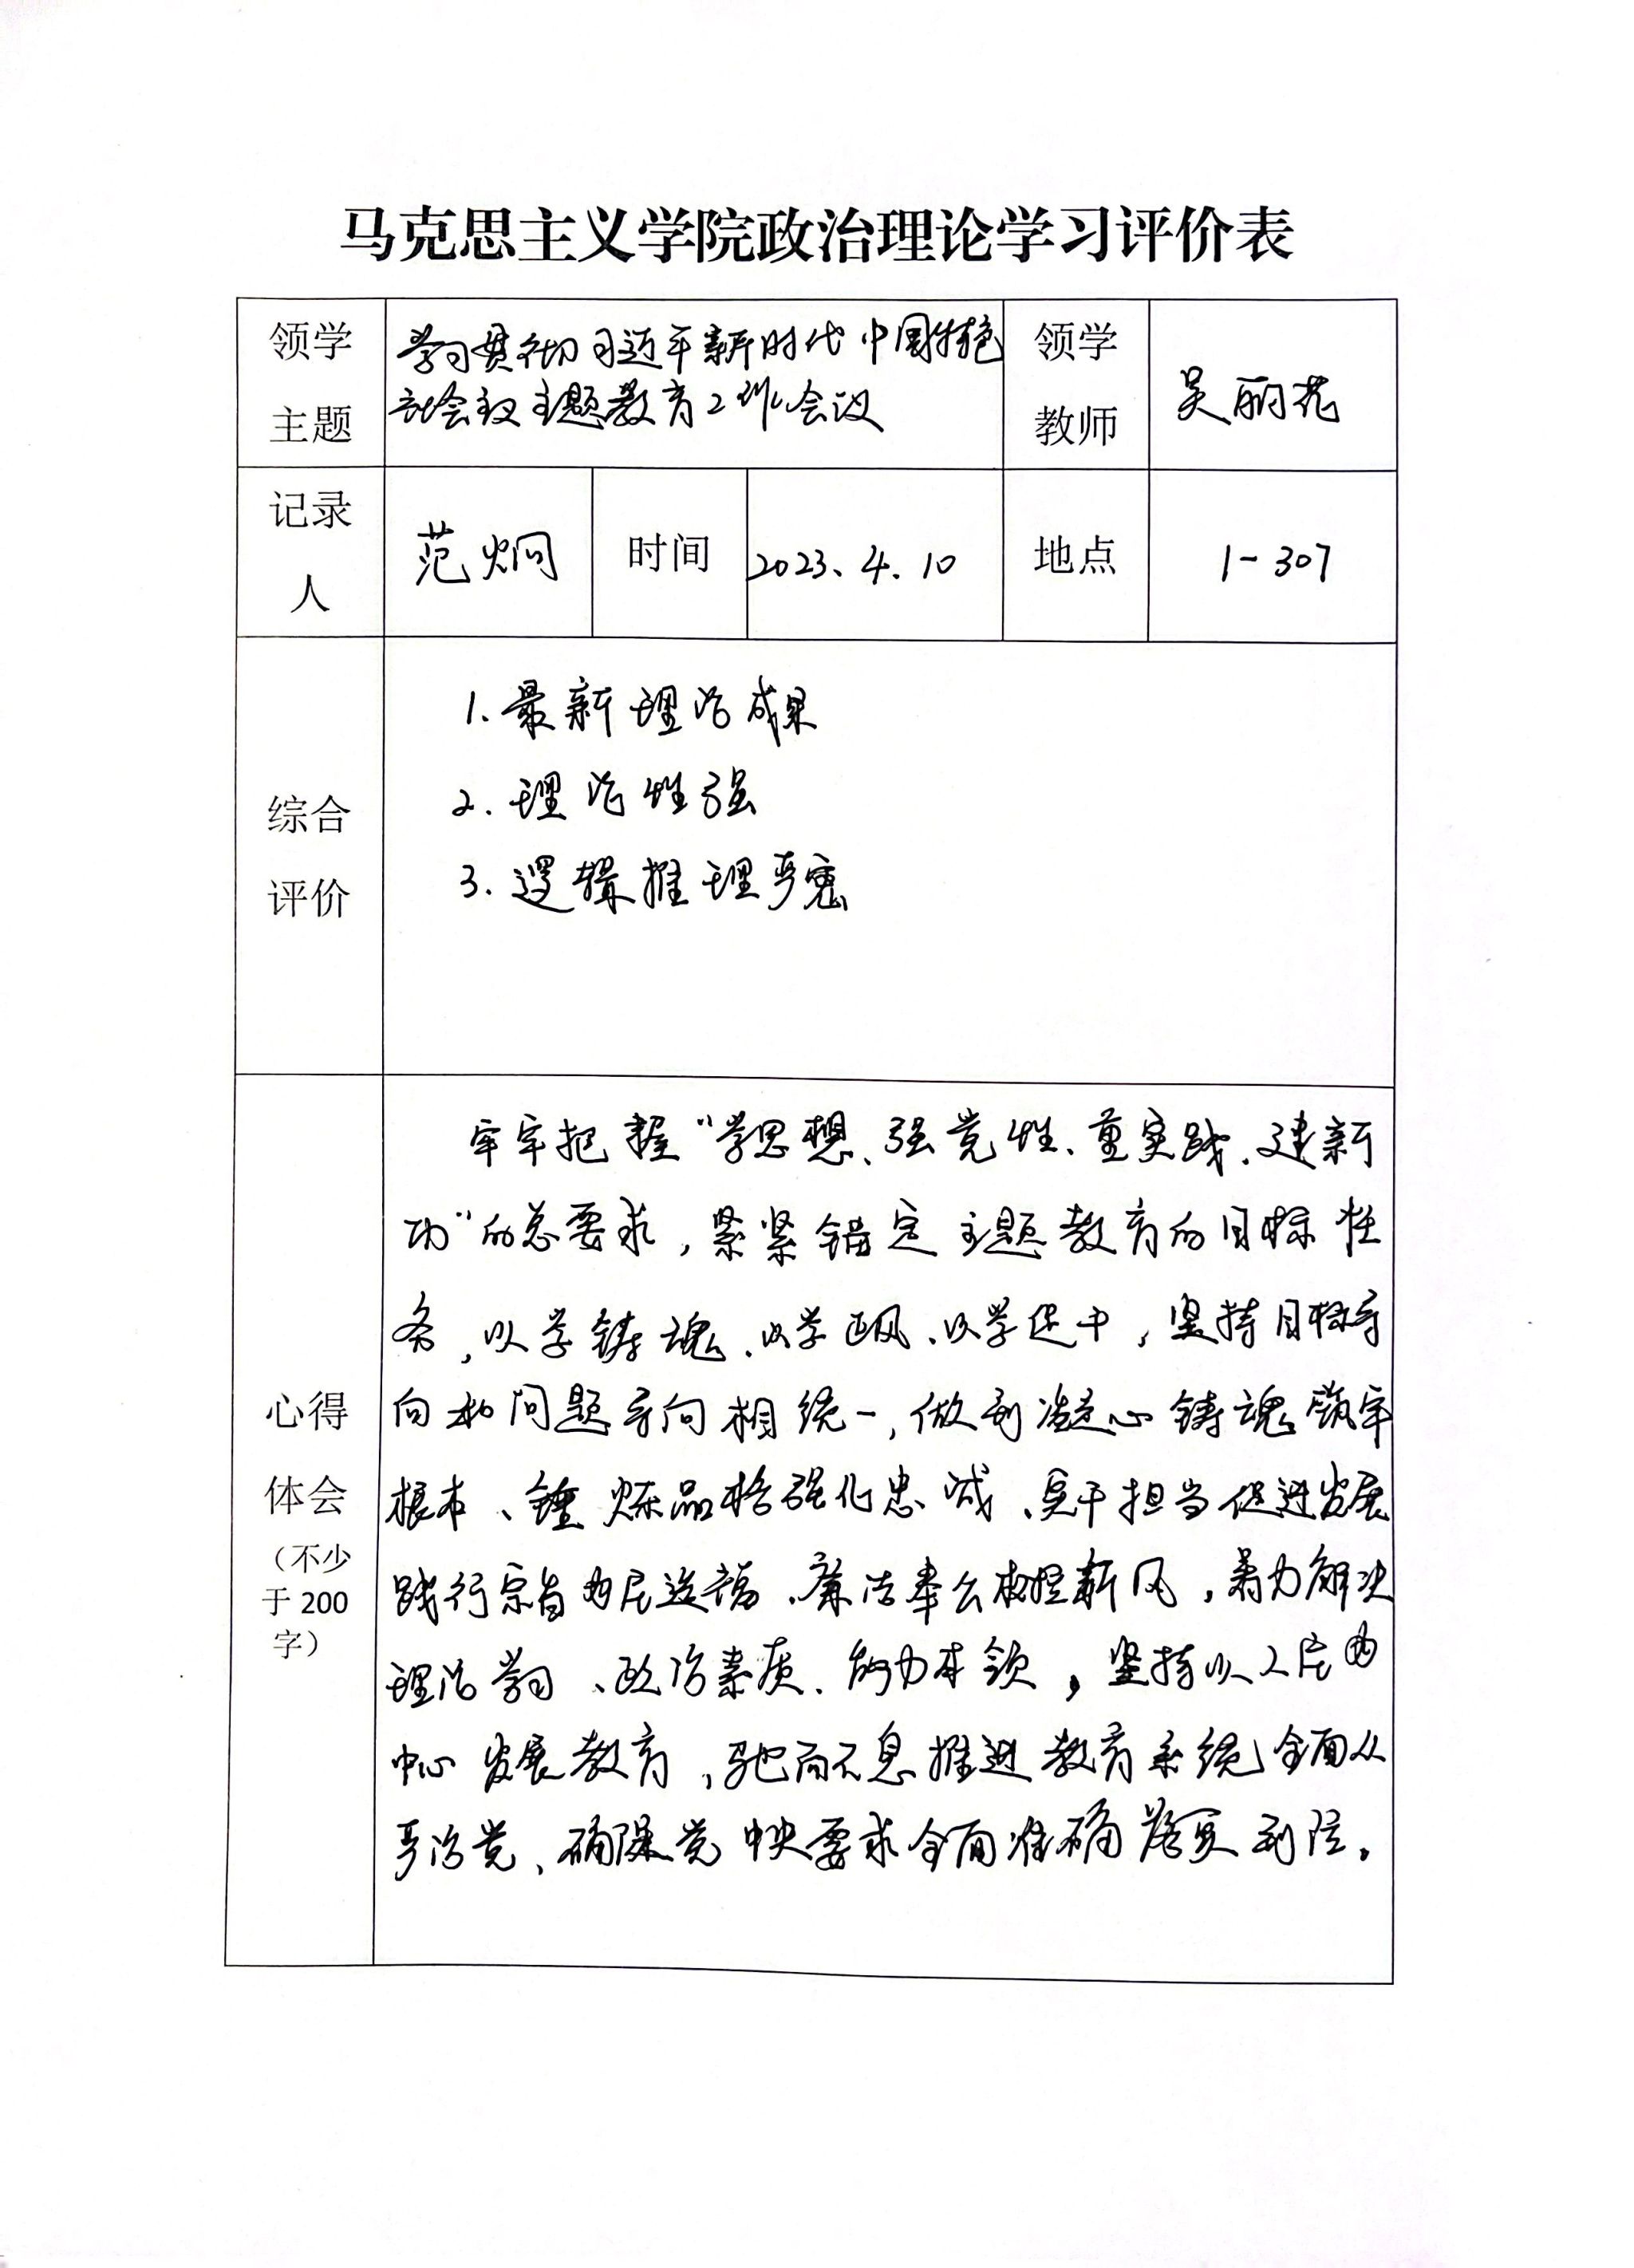 马克思主义学院政治理论学习评价表
领学 学习贯彻习近平新时代中国特色 领学
主题 社会主义主题教育工作会议 教师 吴丽花
记录人 范炯 时间 2023.4.10 地点 1-307
综合评价
1.最新理论成果
2.理论性强
3.逻辑推理严密
心得体会
（不少于200字）
牢牢把握“学思想、强党性、重实践、建新
功”的总要求，紧紧锚定主题教育的目标任
务，以学铸魂、以学正风、以学促干，坚持目标导
向和问题导向相统一，做到凝心铸魂筑牢
根本、锤炼品格强化忠诚、实干担当促进发展
践行宗旨为民造福、廉洁奉公树立新风，着力解决
理论学习、政治素质、能力本领，坚持以人民为
中心发展教育，驰而不息推进教育系统全面从
严治党、确保党中央要求全面准确落实到位。